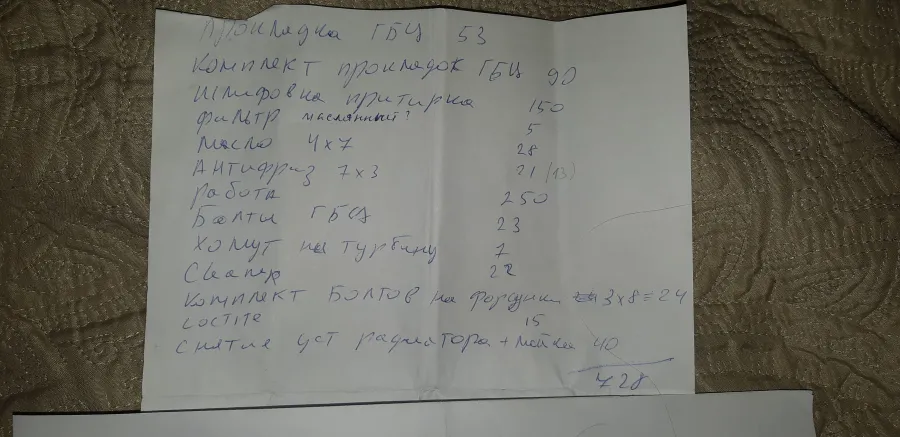 Прокладка ГБЦ 53
Комплект прокладок ГБЦ 90
Шлифовка притирка 150
Фильтр маслянный? 5
Масло 4x7 28
Антифриз 7x3 21 (13)
Работа 250
Балты ГБЦ 23
Хомут на турбину 7
22
Комплект Болтов на форсунки 3x8=24
Loctite 15
Снятие уст радиатора + мойка 40
728